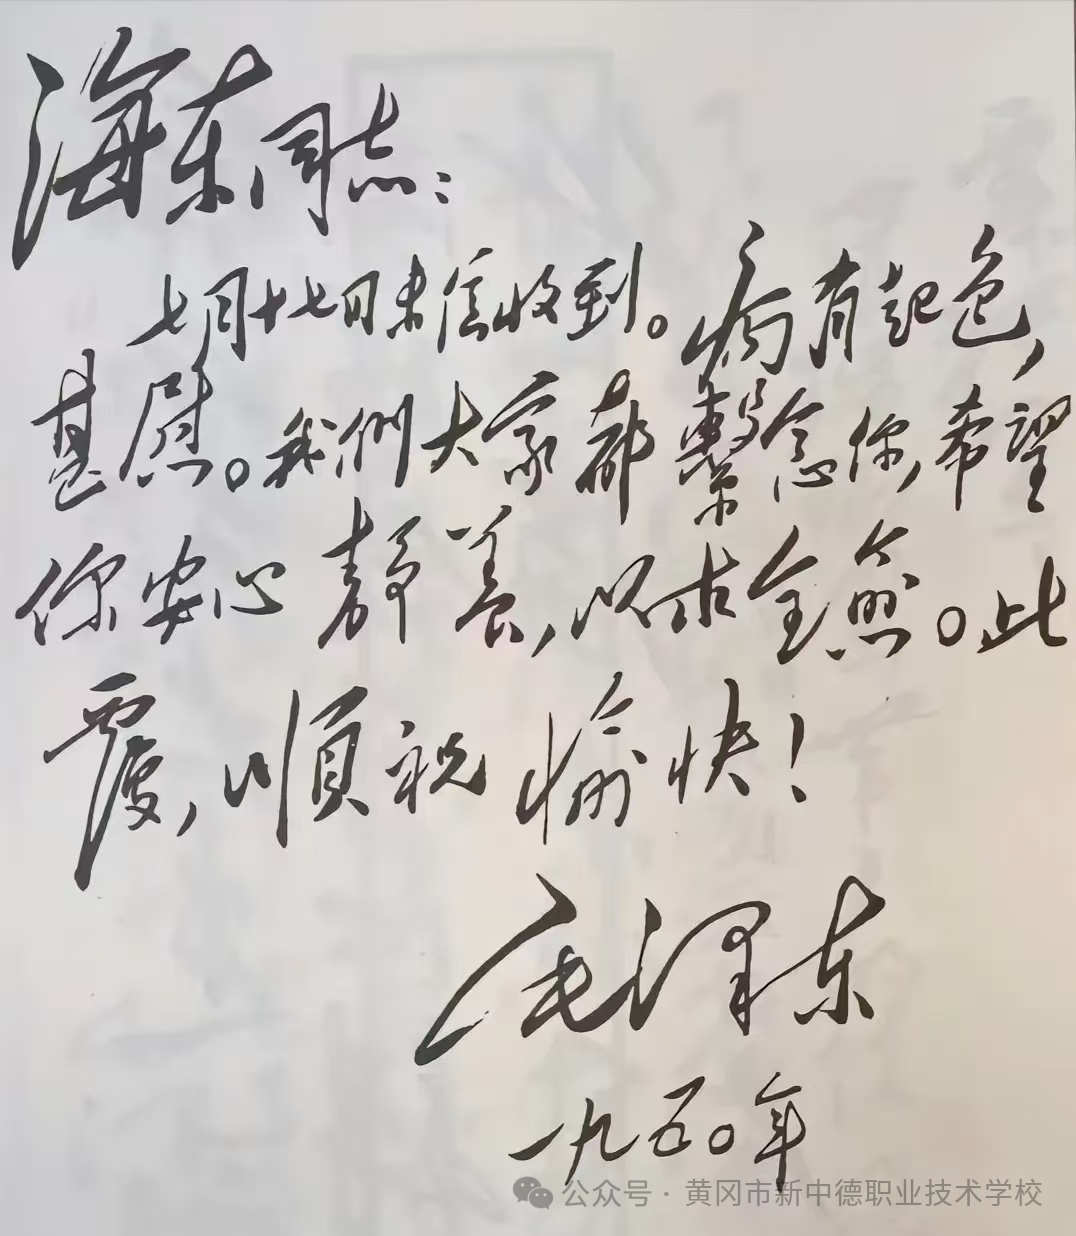 海东同志：
七月十七日来信收到。病有起色，
甚慰。我們大家都繫念你，希望
你安心静養，以求全愈。此
覆，順祝愉快！
毛泽东
一九五〇年
公众号·黄冈市新中德职业技术学校